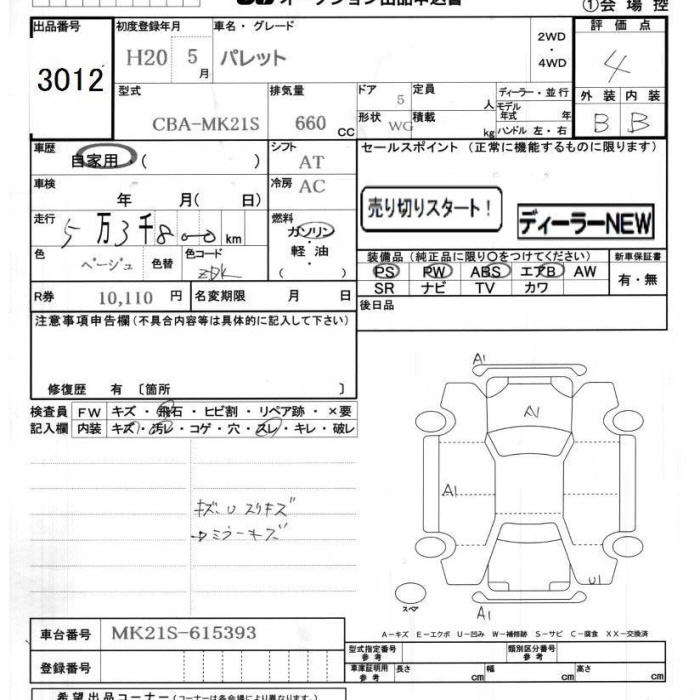 オークション出品申込書
①会場控
出品番号
3012
初度登録年月
H20 5月
車名・グレード
パレット
2WD
・
4WD
評価点
4
型式
CBA-MK21S
排気量
660 CC
ドア
5
定員
人
形状
WG
積載
kg
ディーラー・並行
モデル年式
年
ハンドル 左・右
外装 内装
B B
車歴
自家用・( )
シフト
AT
車検
年 月( 日)
冷房
AC
走行
5万3千800 km
燃料
ガソリン
・
軽油
・
( )
色
ベージュ
色替
色コード
R券
10,110 円
名変期限 月 日
セールスポイント (正常に機能するものに限ります)
売り切りスタート!
ディーラーNEW
装備品(純正品に限り〇をつけてください)
PS PW ABS エアB AW
SR ナビ TV カワ
新車保証書
有・無
後日品
注意事項申告欄(不具合内容等は具体的に記入して下さい)
修復歴 有 〔箇所 〕
検査員
記入欄
FW キズ・飛石・ヒビ割・リペア跡・×要
内装 キズ・汚レ・コゲ・穴・スレ・キレ・破レ
ミラーキズ
A1
A1
A1
U1
A1
スペア
A-キズ E-エクボ U-凹み W-補修跡 S-サビ C-腐食 XX-交換済
車台番号
MK21S-615393
登録番号
型式指定番号
参考
類別区分番号
参考
車庫証明用
参考
長さ cm
幅 cm
高さ cm
希望出品コーナー(コーナーは各会場により異なります。)